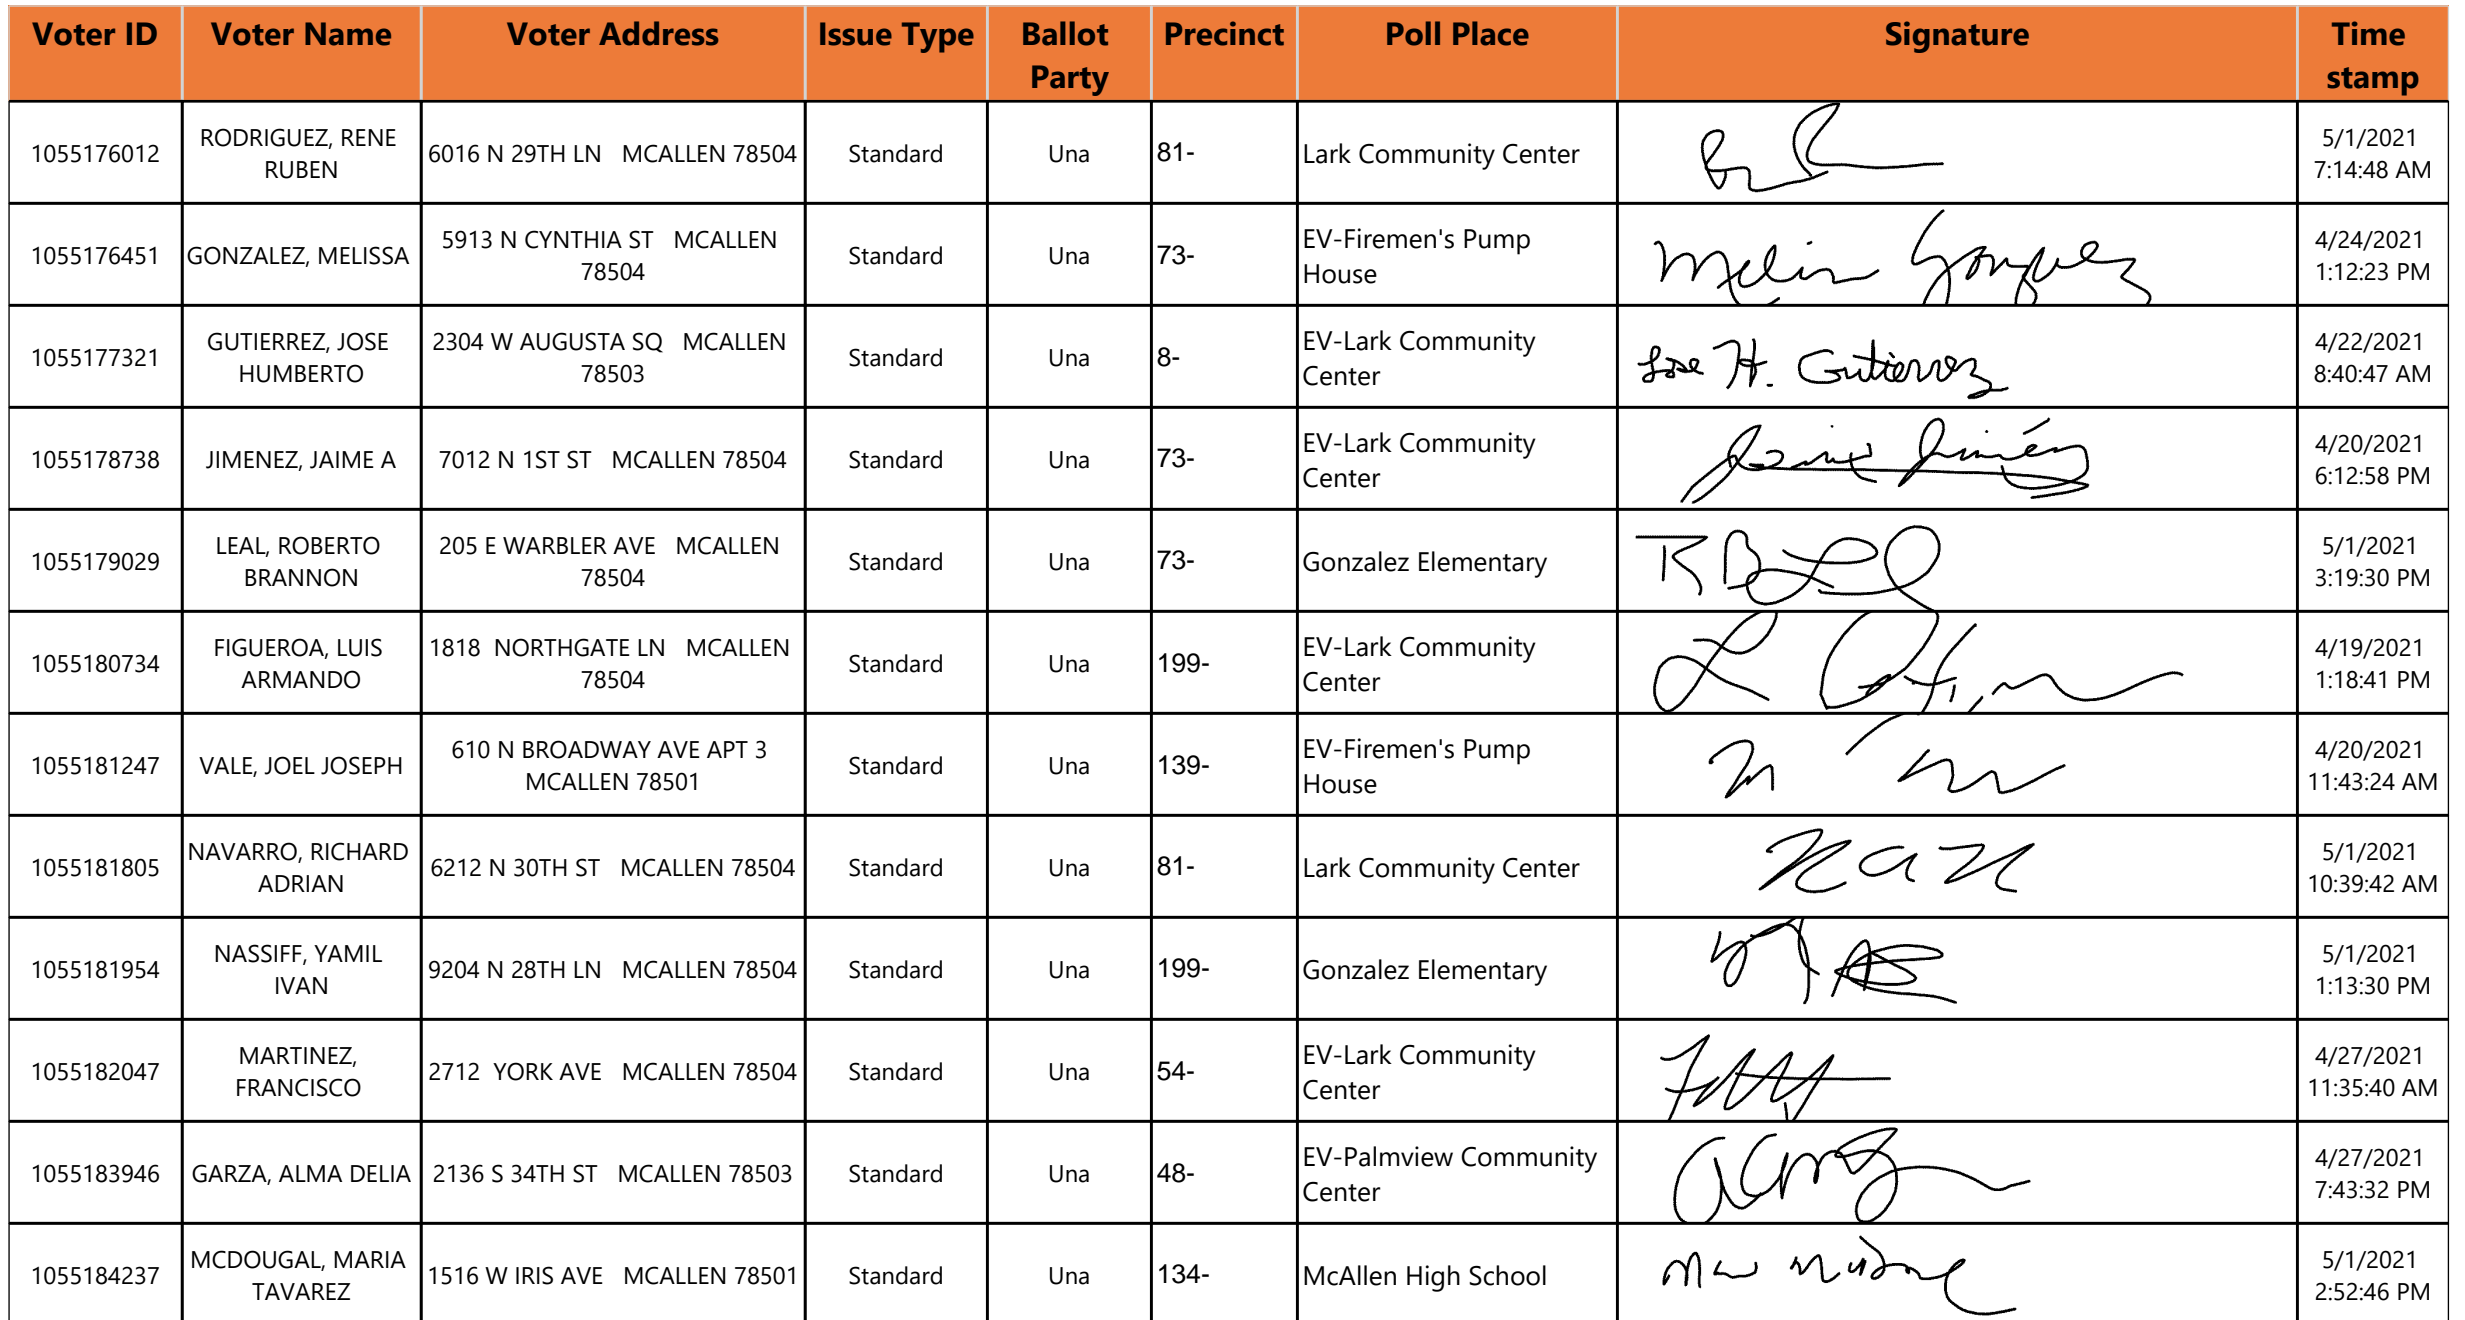 Voter ID Voter Name Voter Address Issue Type Ballot Party Precinct Poll Place Signature Time stamp
1055176012 RODRIGUEZ, RENE RUBEN 6016 N 29TH LN MCALLEN 78504 Standard Una 81- Lark Community Center 5/1/2021 7:14:48 AM
1055176451 GONZALEZ, MELISSA 5913 N CYNTHIA ST MCALLEN 78504 Standard Una 73- EV-Firemen's Pump House 4/24/2021 1:12:23 PM
1055177321 GUTIERREZ, JOSE HUMBERTO 2304 W AUGUSTA SQ MCALLEN 78503 Standard Una 8- EV-Lark Community Center Jose H. Gutierrez 4/22/2021 8:40:47 AM
1055178738 JIMENEZ, JAIME A 7012 N 1ST ST MCALLEN 78504 Standard Una 73- EV-Lark Community Center 4/20/2021 6:12:58 PM
1055179029 LEAL, ROBERTO BRANNON 205 E WARBLER AVE MCALLEN 78504 Standard Una 73- Gonzalez Elementary 5/1/2021 3:19:30 PM
1055180734 FIGUEROA, LUIS ARMANDO 1818 NORTHGATE LN MCALLEN 78504 Standard Una 199- EV-Lark Community Center 4/19/2021 1:18:41 PM
1055181247 VALE, JOEL JOSEPH 610 N BROADWAY AVE APT 3 MCALLEN 78501 Standard Una 139- EV-Firemen's Pump House 4/20/2021 11:43:24 AM
1055181805 NAVARRO, RICHARD ADRIAN 6212 N 30TH ST MCALLEN 78504 Standard Una 81- Lark Community Center 5/1/2021 10:39:42 AM
1055181954 NASSIFF, YAMIL IVAN 9204 N 28TH LN MCALLEN 78504 Standard Una 199- Gonzalez Elementary 5/1/2021 1:13:30 PM
1055182047 MARTINEZ, FRANCISCO 2712 YORK AVE MCALLEN 78504 Standard Una 54- EV-Lark Community Center 4/27/2021 11:35:40 AM
1055183946 GARZA, ALMA DELIA 2136 S 34TH ST MCALLEN 78503 Standard Una 48- EV-Palmview Community Center 4/27/2021 7:43:32 PM
1055184237 MCDOUGAL, MARIA TAVAREZ 1516 W IRIS AVE MCALLEN 78501 Standard Una 134- McAllen High School 5/1/2021 2:52:46 PM